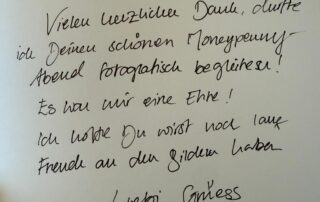 Vielen herzlichen Dank, durfte
ich Deinen schönen Moneypenny-
Abend fotografisch begleiten!
Es war mir eine Ehre!
Ich hoffe Du wirst noch lang
Freude an den Bildern haben